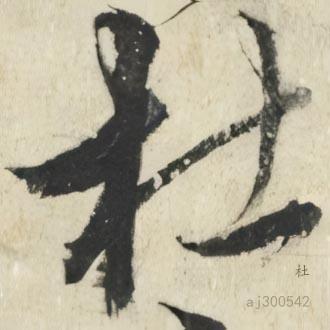 杜
杜
aj300542